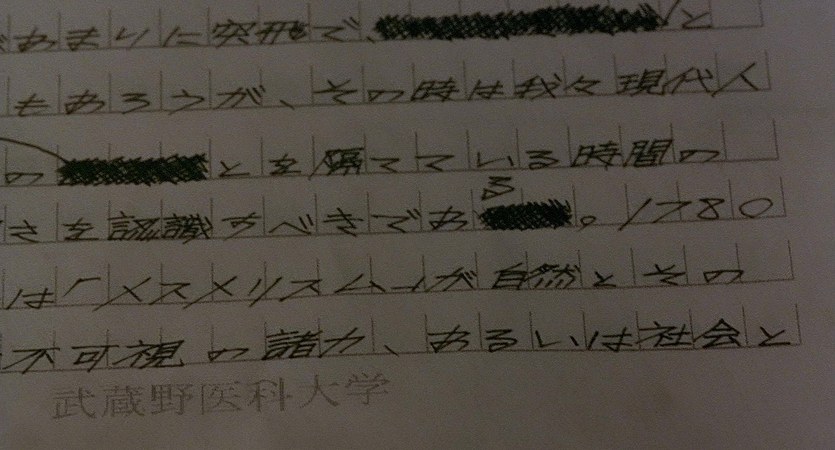 あまりに突飛で、と
もあろうが、その時は我々現代人
のとを隔てている時間の
さを認識すべきである。1780
は「メスメリスム」が自然とその
不可視の諸力、あるいは社会と
武蔵野医科大学